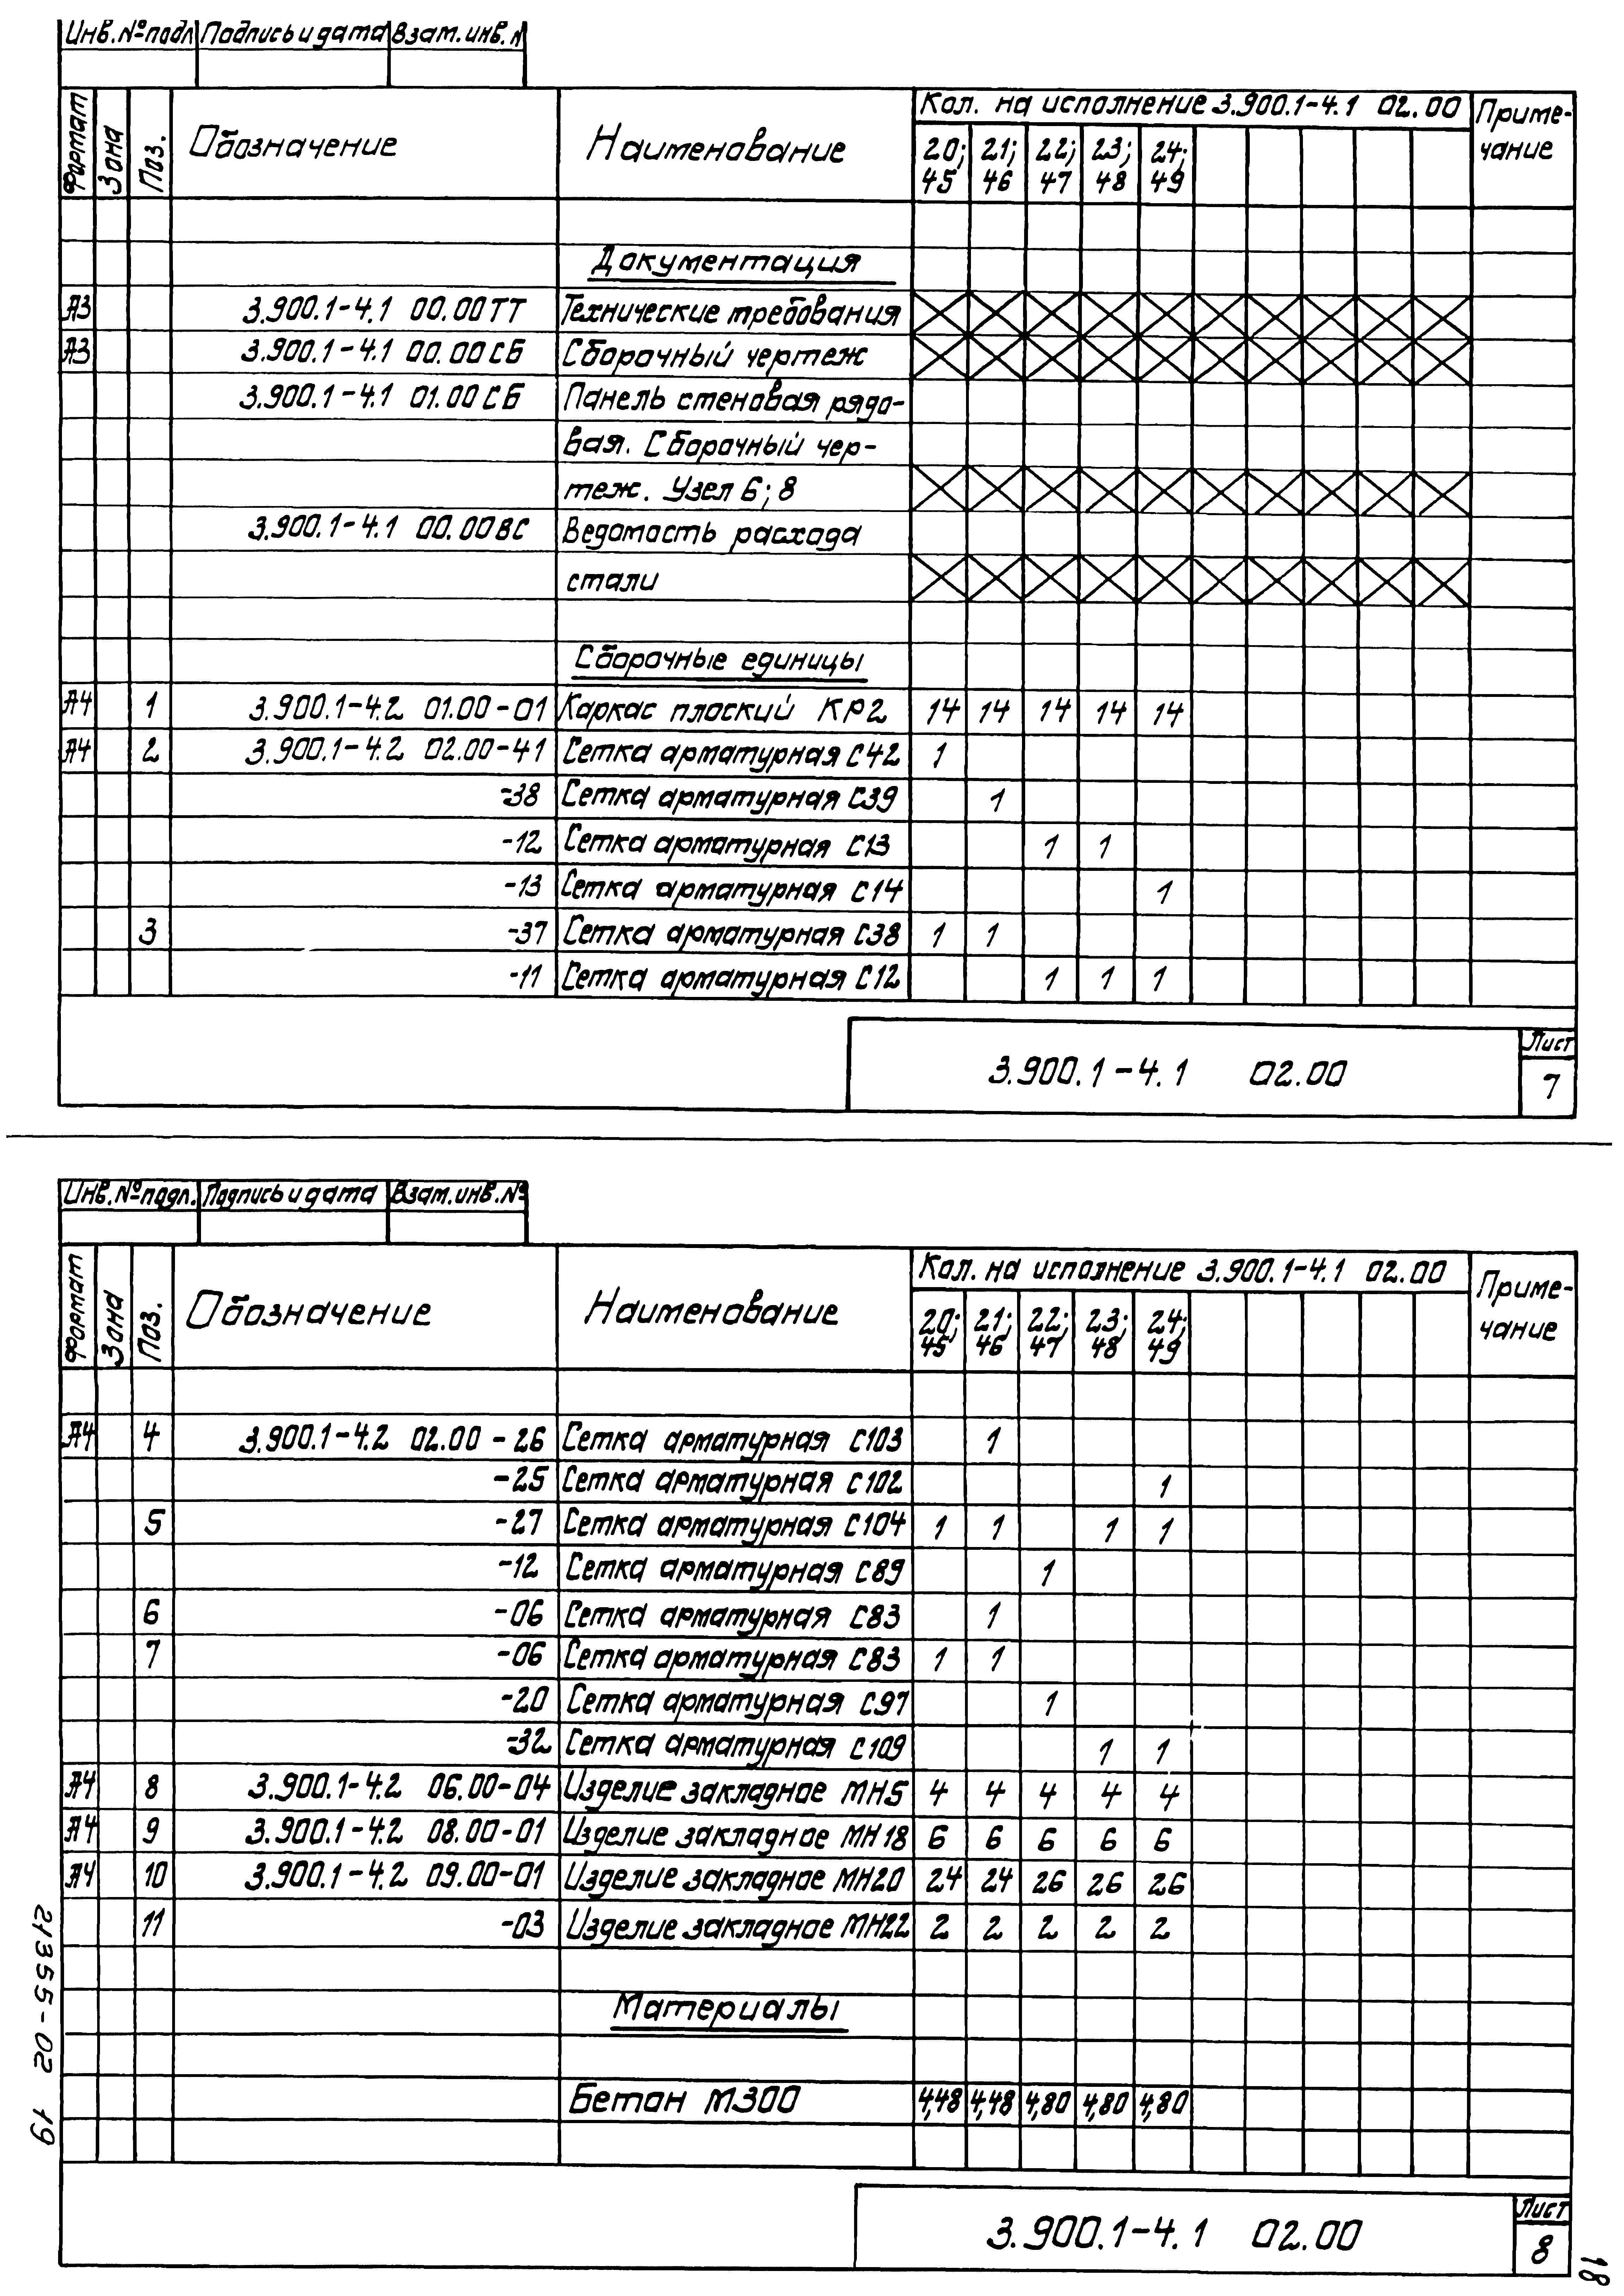 Инв. № подл Подпись и дата Взам. инв. №
Формат Зона Поз. Обозначение Наименование Кол. на исполнение 3.900.1-4.1 02.00 Приме-
чание
20; 21; 22; 23; 24;
45 46 47 48 49
Документация
А3 3.900.1-4.1 00.00ТТ Технические требования
А3 3.900.1-4.1 00.00СБ Сборочный чертеж
3.900.1-4.1 01.00СБ Панель стеновая рядо-
вая. Сборочный чер-
теж. Узел 6; 8
3.900.1-4.1 00.00ВС Ведомость расхода
стали
Сборочные единицы
А4 1 3.900.1-4.2 01.00-01 Каркас плоский КР2 14 14 14 14 14
А4 2 3.900.1-4.2 02.00-41 Сетка арматурная С42 1
-38 Сетка арматурная С39 1
-12 Сетка арматурная С13 1 1
-13 Сетка арматурная С14 1
3 -37 Сетка арматурная С38 1 1
-11 Сетка арматурная С12 1 1 1
3.900.1-4.1 02.00 Лист
7
Инв. № подл. Подпись и дата Взам. инв. №
Формат Зона Поз. Обозначение Наименование Кол. на исполнение 3.900.1-4.1 02.00 Приме-
чание
20; 21; 22; 23; 24;
45 46 47 48 49
А4 4 3.900.1-4.2 02.00-26 Сетка арматурная С103 1
-25 Сетка арматурная С102 1
5 -27 Сетка арматурная С104 1 1 1 1
-12 Сетка арматурная С89 1
6 -06 Сетка арматурная С83 1
7 -06 Сетка арматурная С83 1 1
-20 Сетка арматурная С97 1
-32 Сетка арматурная С109 1 1
А4 8 3.900.1-4.2 06.00-04 Изделие закладное МН5 4 4 4 4 4
А4 9 3.900.1-4.2 08.00-01 Изделие закладное МН18 6 6 6 6 6
А4 10 3.900.1-4.2 09.00-01 Изделие закладное МН20 24 24 26 26 26
11 -03 Изделие закладное МН22 2 2 2 2 2
Материалы
Бетон М300 4,48 4,48 4,80 4,80 4,80
3.900.1-4.1 02.00 Лист
8
21355-02 19
18